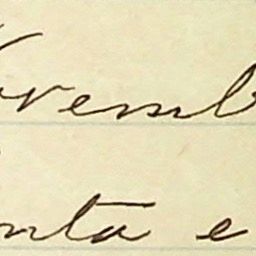 Novemb
nta e